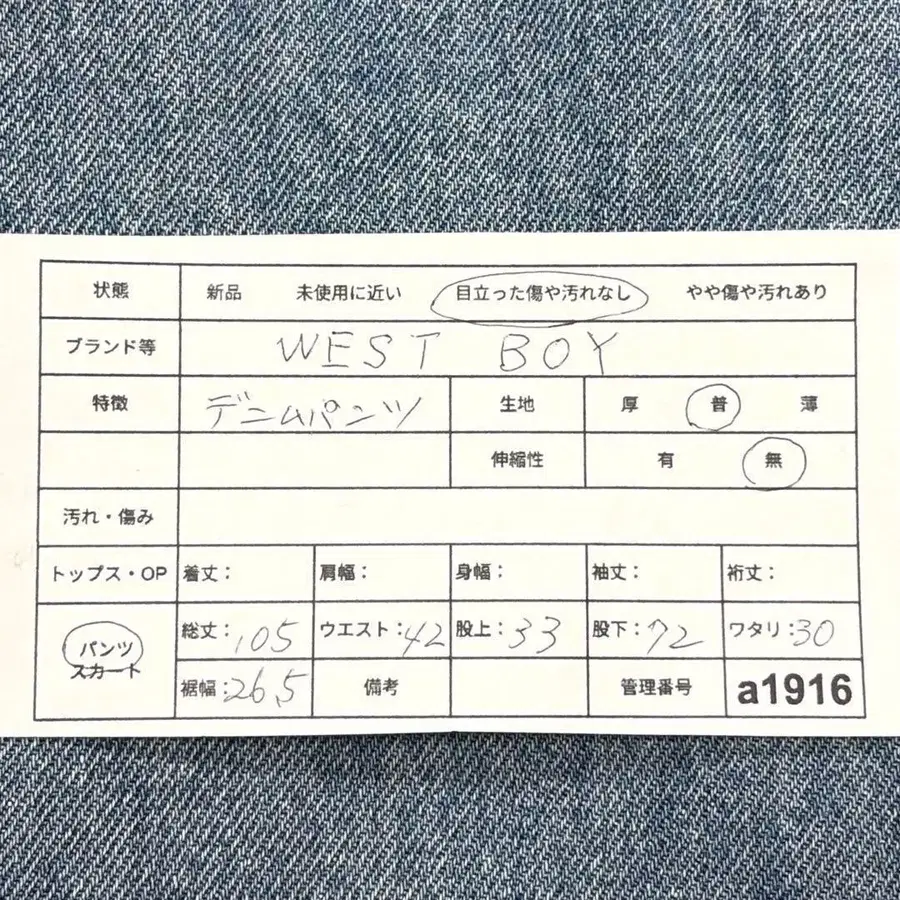 状態 新品 未使用に近い 目立った傷や汚れなし やや傷や汚れあり
ブランド等 WEST BOY
特徴 デニムパンツ 生地 厚 普 薄
伸縮性 有 無
汚れ・傷み
トップス・OP 着丈： 肩幅： 身幅： 袖丈： 裄丈：
パンツ 総丈：105 ウエスト：42 股上：33 股下：72 ワタリ：30
スカート
裾幅：26.5 備考 管理番号 a1916